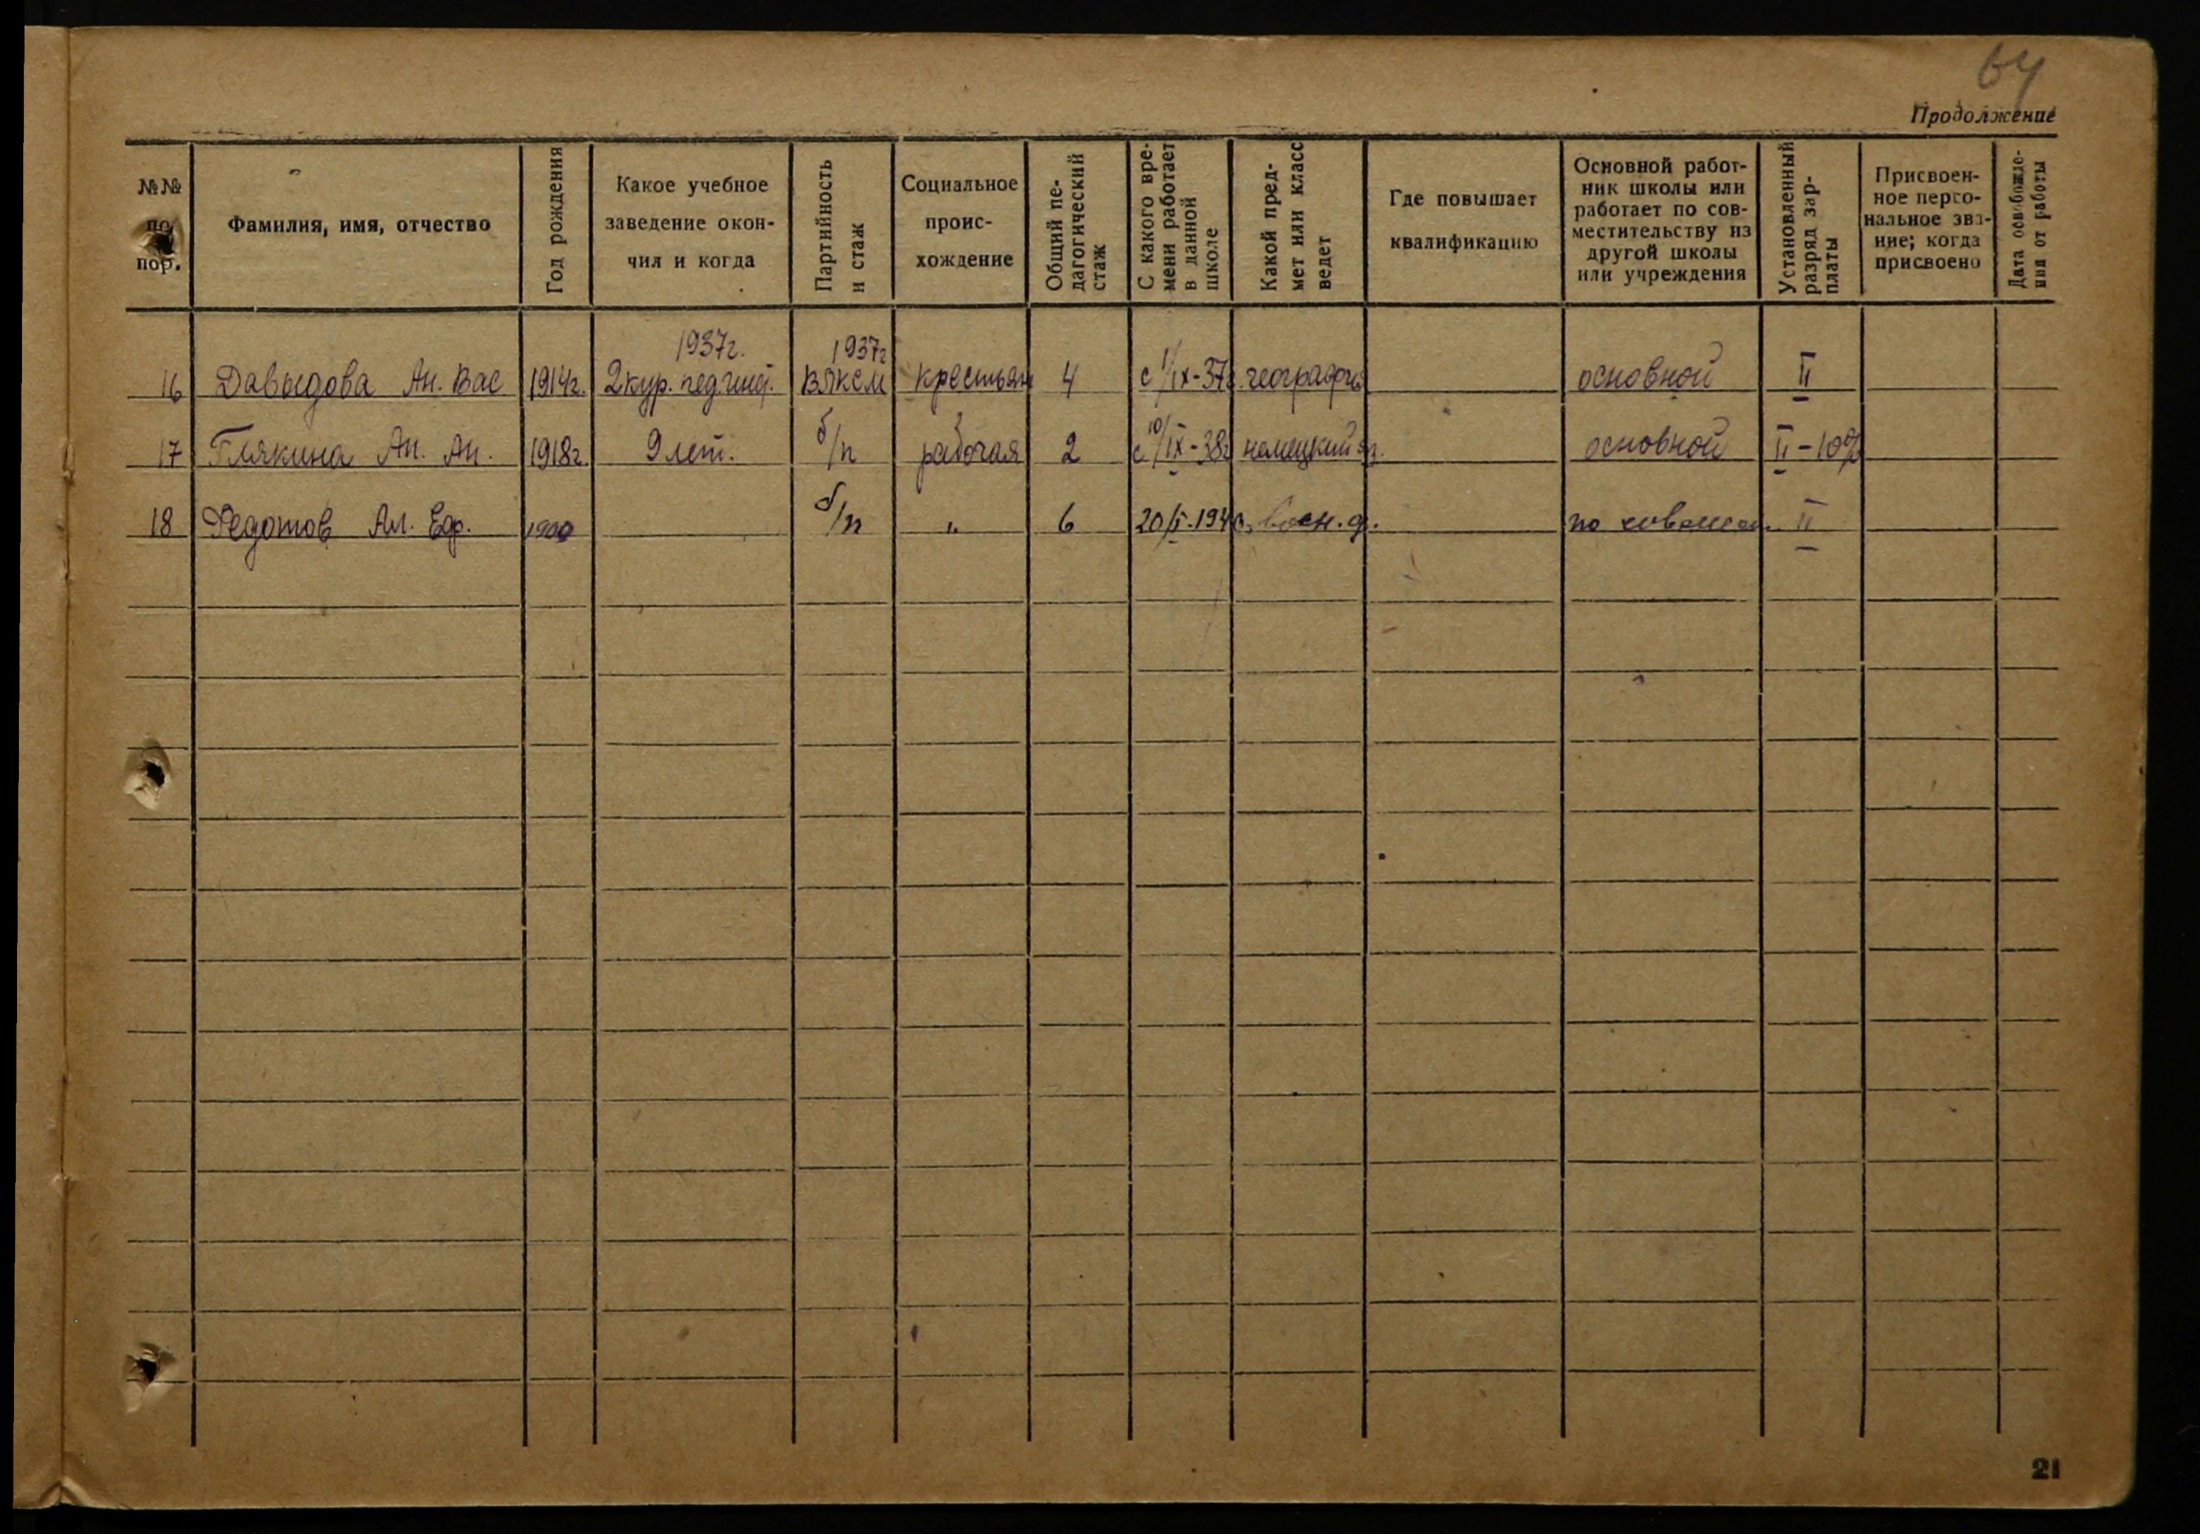 64
Продолжение
№№ по пор.
Фамилия, имя, отчество
Год рождения
Какое учебное заведение окон- чил и когда
Партийность и стаж
Социальное проис- хождение
Общий пе- дагогический стаж
С какого вре- мени работает в данной школе
Какой пред- мет или класс ведет
Где повышает квалификацию
Основной работ- ник школы или работает по сов- местительству из другой школы или учреждения
Установленный разряд зар- платы
Присвоен- ное персо- нальное зва- ние; когда присвоено
Дата освобожде- ния от работы
1937г. 1937г
16 Давыдова Ан. Вас 1914г. 2 кур. пед. инст. ВЛКСМ крестьян 4 с 1/IX-37г. географ основной II
17 Глякина Ан. Ан. 1918г. 9 лет. б/п рабочая 2 с 10/IX-38г немецкий яз. основной II - 10%
18 Федотов Ал. Ефр. 1900 б/п „ 6 воен. д. по II
21